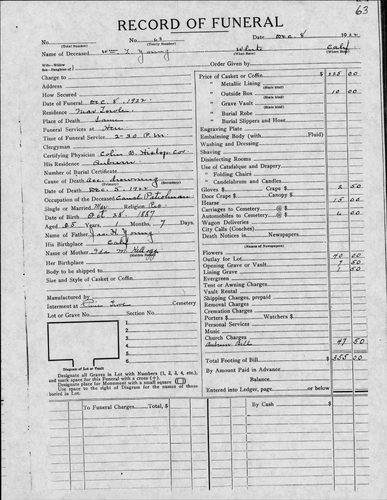 63
RECORD OF FUNERAL
No. No. 63 Date Dec 8 1922
(Total Number) (Yearly Number)
Name of Deceased Wm. T. Young White Calif
(What Race) (Where Born)
Wife-Widow
Son-Daughter of Order Given by
Charge to
Address
How Secured
Date of Funeral Dec. 8, 1922
Residence
Place of Death Same
Funeral Services at Here
Time of Funeral Service 2-30 P.M.
Clergyman
Certifying Physician Colin B. Hislop Cor.
His Residence Auburn
Number of Burial Certificate
Cause of Death Acc. drowning
Date of Death Dec. 2, 1922
Occupation of the Deceased Canal Patrolman
Single or Married Mar Religion Pro
Date of Birth Oct 25, 1857
Aged 65 Years, 1 Months, 7 Days
Name of Father Jas. H. Young
His Birthplace Calif
Name of Mother M. Kellogg
Her Birthplace
Body to be shipped to
Size and Style of Casket or Coffin
Manufactured by
Interment at Cemetery
Lot or Grave No. Section No.
Diagram of Lot or Vault
Designate all Graves in Lot with Numbers (1, 2, 3, 4, etc.),
and mark space for this Funeral with a cross (+).
Designate place for Monument with a small square
Use space to the right of Diagram for the names of those
buried in Lot.
Price of Casket or Coffin $225 00
" Metallic Lining
(State Kind)
" Outside Box 10 00
(State Kind)
" Grave Vault
(State Kind)
" Burial Robe
(State Kind)
" Burial Slippers and Hose
Engraving Plate
Embalming Body (with Fluid)
Washing and Dressing
Shaving
Disinfecting Rooms
Use of Catafalque and Drapery
" Folding Chairs
" Candelabrum and Candles
Gloves $ Crape $ 2 50
Door Crape $ Canopy $
Hearse 15 00
Carriages to Cemetery @ $
Automobiles to Cemetery @ $ 6 00
Wagon Deliveries
City Calls (Coaches)
Death Notices in Newspapers
(Names of Newspapers)
Flowers
Outlay for Lot 40 00
Opening Grave or Vault 7 50
Lining Grave 1 50
Evergreen
Tent or Awning Charges
Vault Rental
Shipping Charges, prepaid
Removal Charges
Cremation Charges
Porters $ Watchers $
Personal Services
Music
Church Charges
Auburn Bill 47 50
Total Footing of Bill $355 00
By Amount Paid in Advance
Balance
Entered into Ledger, page or below
To Funeral Charges $ By Cash $